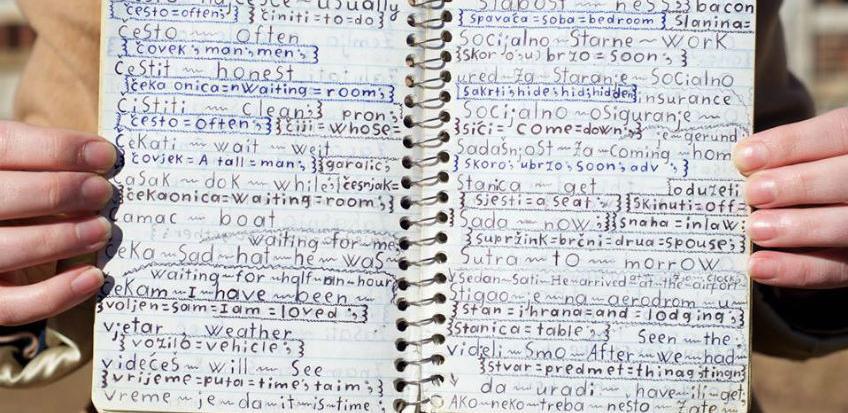 često=often; } { činiti=to=do }
često ~ often
{ čovek; man; men; }
čestit ~ honest
{ čeka onica=nWaiting=room; }
čistiti ~ clean; } pron;
{ često=often; } { čiji=whose=
čekati ~ wait ~ weit
{ čovjek=A tall=man; } { garalic;
časak ~ dok ~ while; { česnjak=
{ čekaonica=waiting=room; }
čamac ~ boat
waiting~for~me
čeka~sad~hat~he~was
waiting~for~half~an~hour
čekam~I~have~been~
{ voljen=sam=I am=loved; }
vjetar ~ weather
{ vozilo=vehicle; }
videćeš ~ will ~ see
{ vrijeme=puta=time; taim; }
vreme~je~da~it~is~time
bacon
{ spavaća=soba=bedroom } slanina=
Socijalno ~ Starne ~ work
brzo=soon; }
ured~za~staranje~socialno
{ sakrti; hide; hid; hidden } insurance
Socijalno ~ osiguranje ~
{ sići= come=down; } gerund
Sadašnjost~za~coming~hom
{ skoro; ubrzo; soon; adv }
Stanica ~ get oduzeti
{ sjesti=a seat } { skinuti=off=
Sada ~ now; } { snaha=inlaw;
{ supržink=brčni=drua=spouse; }
Sutra ~ to ~ morrow
Vsedan~sati~He~arrived~at~the~airport~
Stigao~je~na~aerodrom~u~
{ stan=i=hrana=and=lodging; }
{ stanica=table; } Seen~the
videli~smo~After~we~had~
{ stvar=predmet=thinag
da ~ uradi ~ have~ili~get
Ako~neko~treba~nešto~